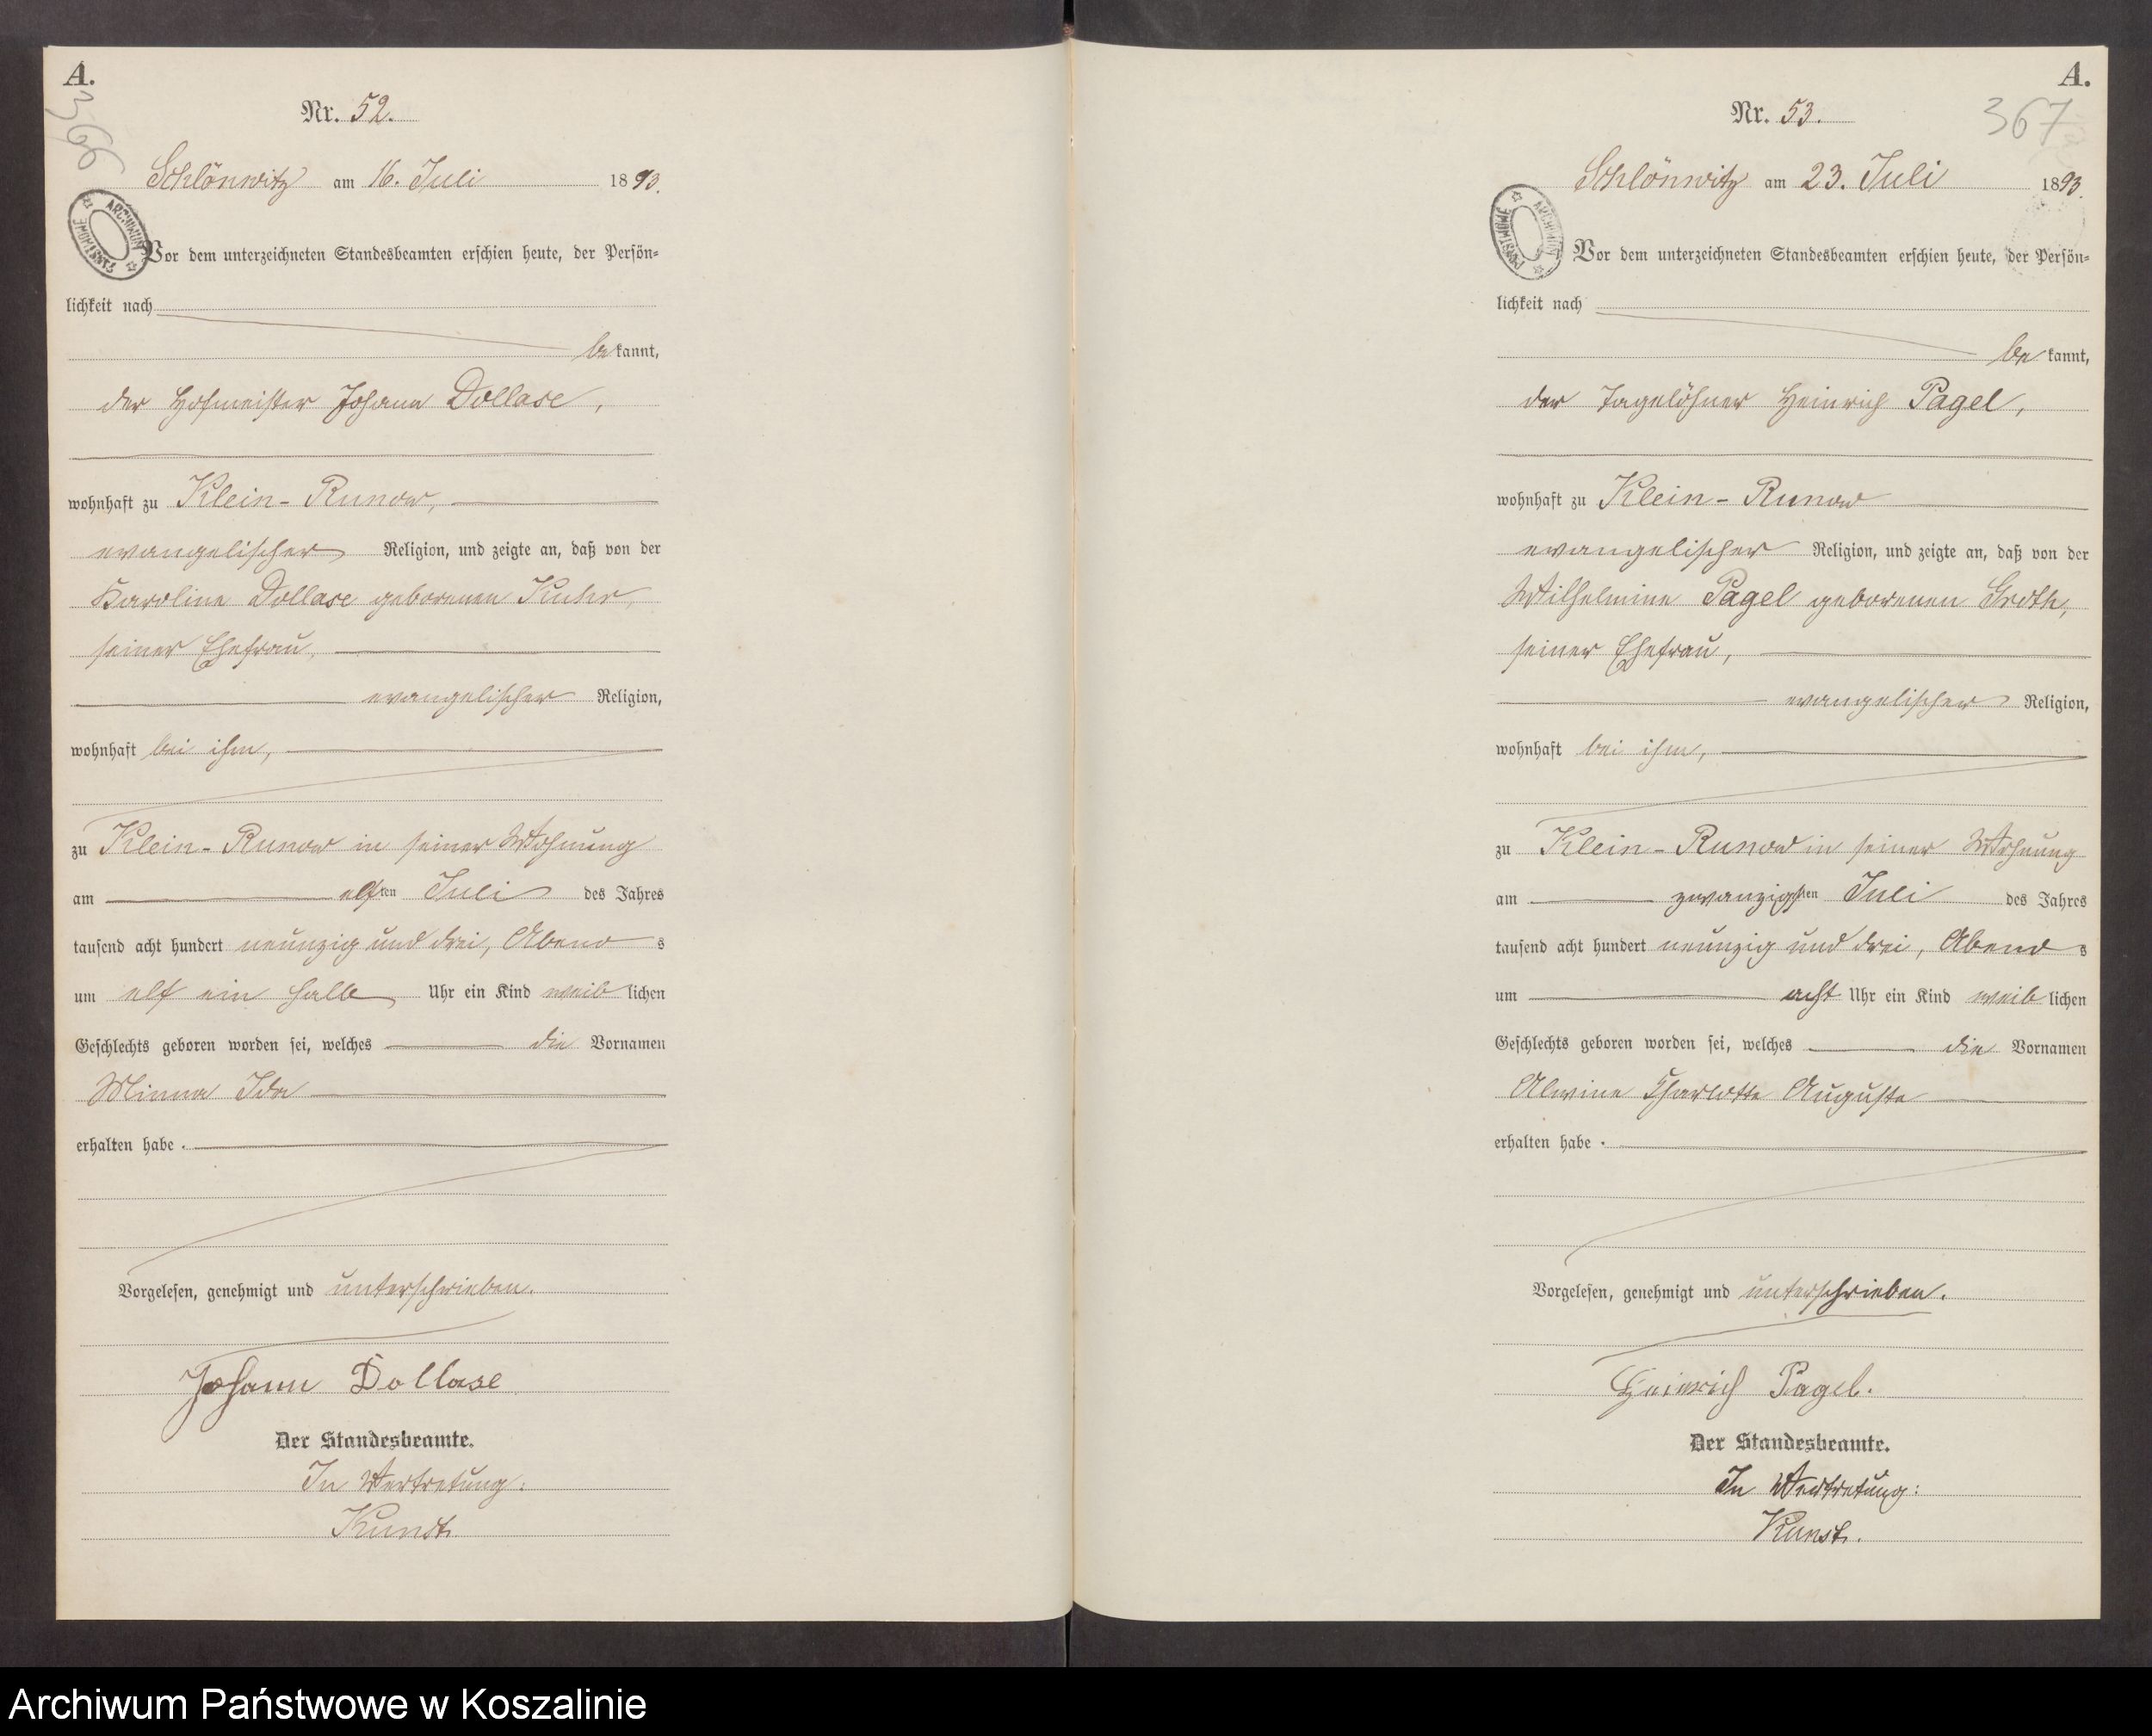 A.
366
Nr. 52.
Schlönwitz am 16. Juli 1893.
ARCHIWUM PAŃSTWOWE
Vor dem unterzeichneten Standesbeamten erschien heute, der Persön-
lichkeit nach
bekannt,
der Hofmeister Johann Dollase,
wohnhaft zu Klein-Runow,
evangelischer Religion, und zeigte an, daß von der
Karoline Dollase geborenen Kuhr,
seiner Ehefrau,
evangelischer Religion,
wohnhaft bei ihm,
zu Klein-Runow in seiner Wohnung
am elften Juli des Jahres
tausend acht hundert neunzig und drei, Abends
um elf ein halb Uhr ein Kind weiblichen
Geschlechts geboren worden sei, welches die Vornamen
Minna Ida
erhalten habe.
Vorgelesen, genehmigt und unterschrieben.
Johann Dollase
Der Standesbeamte.
In Vertretung:
Kunst
A.
367
Nr. 53.
Schlönwitz am 23. Juli 1893.
ARCHIWUM PAŃSTWOWE
Vor dem unterzeichneten Standesbeamten erschien heute, der Persön-
lichkeit nach
bekannt,
der Tagelöhner Heinrich Pagel,
wohnhaft zu Klein-Runow
evangelischer Religion, und zeigte an, daß von der
Wilhelmine Pagel geborenen Groth,
seiner Ehefrau,
evangelischer Religion,
wohnhaft bei ihm,
zu Klein-Runow in seiner Wohnung
am zwanzigsten Juli des Jahres
tausend acht hundert neunzig und drei, Abends
um acht Uhr ein Kind weiblichen
Geschlechts geboren worden sei, welches die Vornamen
Alwine Charlotte Auguste
erhalten habe.
Vorgelesen, genehmigt und unterschrieben.
Heinrich Pagel.
Der Standesbeamte.
In Vertretung:
Kunst.
Archiwum Państwowe w Koszalinie